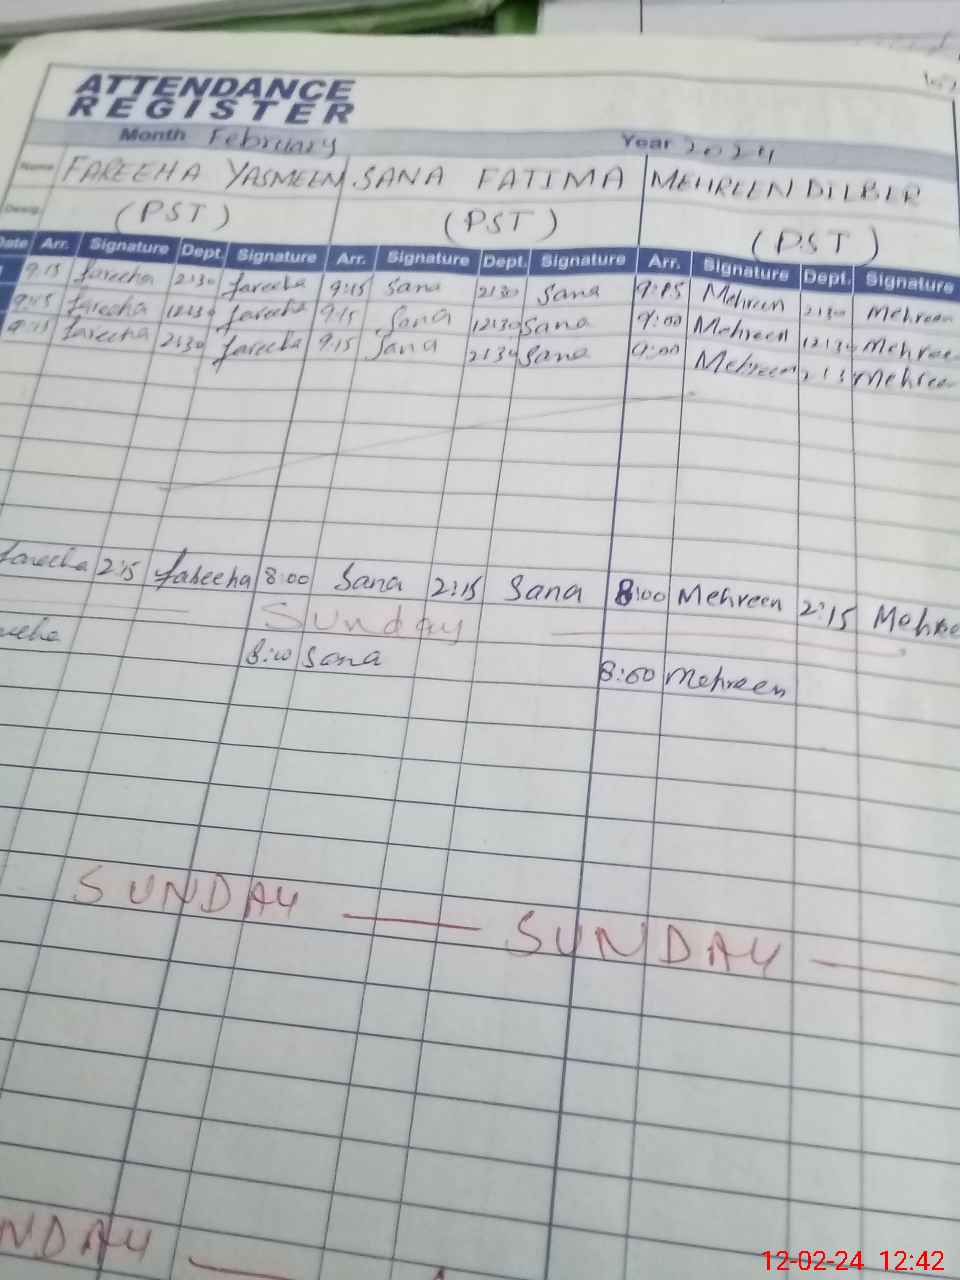 ATTENDANCE
REGISTER
Month February Year 2024
Name FAREEHA YASMEEN SANA FATIMA MEHREEN DILBIR
Desig. (PST) (PST) (PST)
Date Arr. Signature Dept. Signature Arr. Signature Dept. Signature Arr. Signature Dept. Signature
9:15 fareeha 2:30 fareeha 9:15 Sana 2:30 Sana Mehreen 2:30 Mehreen
9:15 fareeha 12:30 fareeha 9:15 Sana 12:30 Sana 9:00 Mehreen 12:30 Mehree
9:15 fareeha 2:30 fareeha 9:15 Sana 2:30 Sana 9:00 Mehreen Mehreen
fareeha 2:15 fareeha 8:00 Sana 2:15 Sana 8:00 Mehreen 2:15 Mehre
Sunday
eeha 8:00 Sana 8:00 Mehreen
SUNDAY — SUNDAY —
NDAY —
12-02-24 12:42